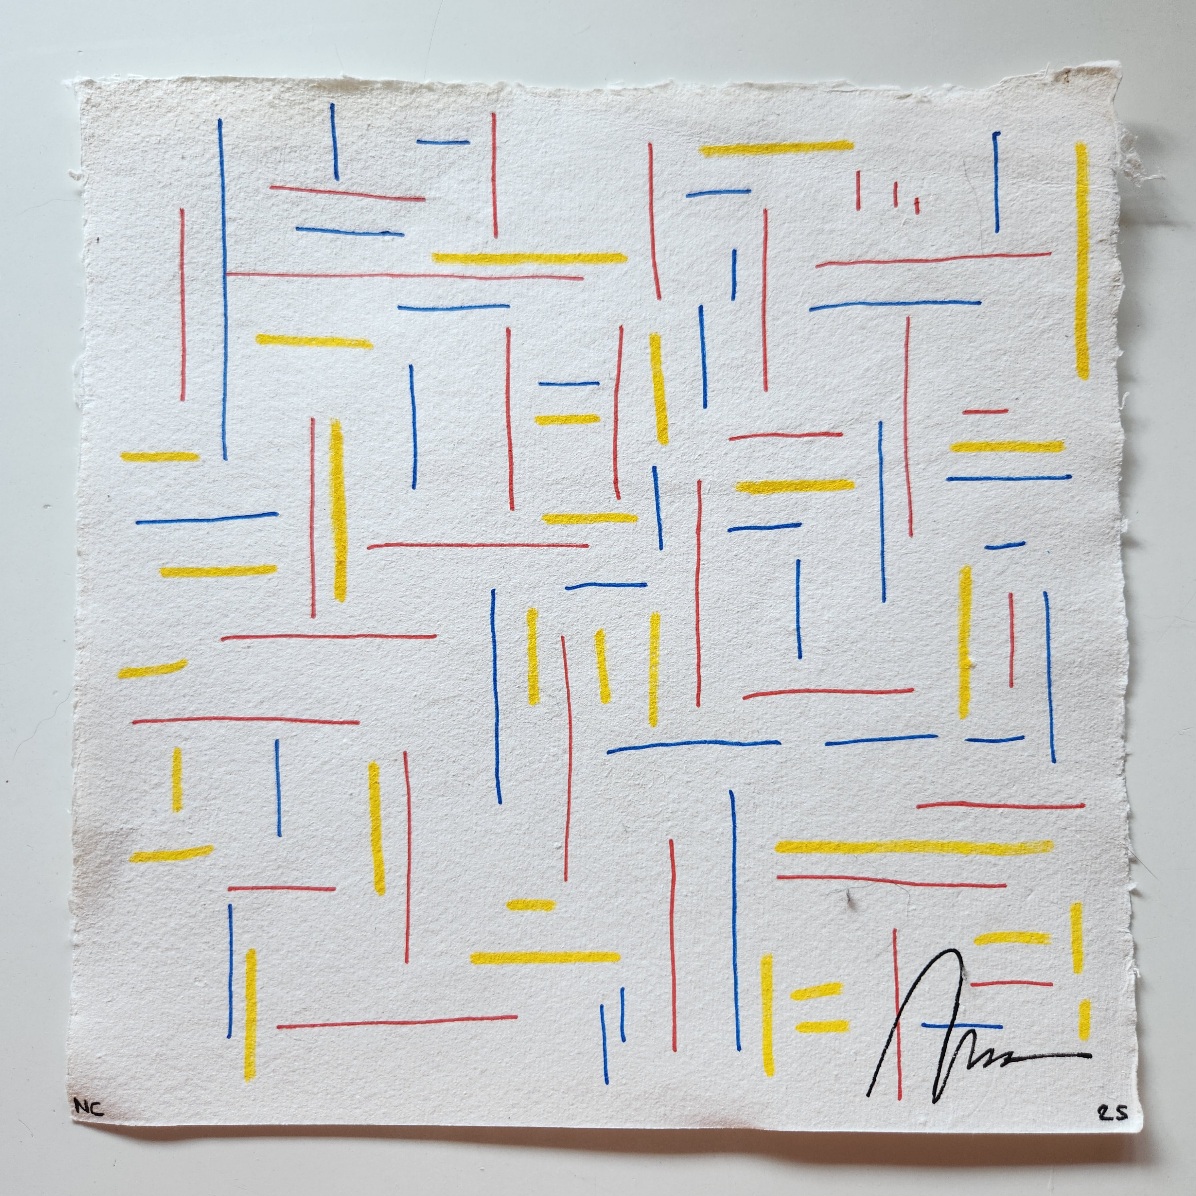 NC
25